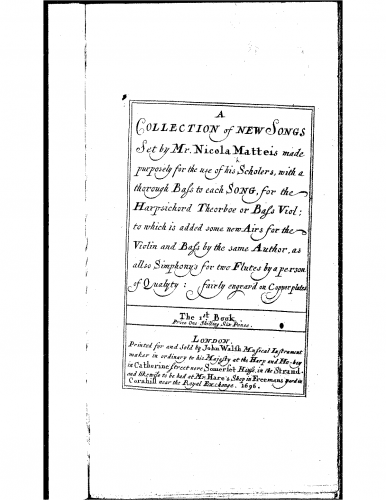 A
COLLECTION of NEW SONGS
Set by Mr. Nicola Matteis made
purposely for the use of his Scholers, with a
thorough Bass to each SONG, for the
Harpsichord Theorboe or Bass Viol:
to which is added some new Airs for the
Violin and Bass by the same Author, as
allso Simphony's for two Flutes by a person
of Qualyty: fairly engrav'd on Copper plates
The 1st. Book.
Price One Shilling Six Pence.
LONDON.
Printed for and Sold by John Walsh Musical Instrument
maker in ordinary to his Majesty at the Harp and Ho-boy
in Catherine street nere Somerset House, in the Strand.
and likewise to be had at Mr. Hare's Shop in Freemans yard in
Cornhill near the Royal Exchange. 1696.